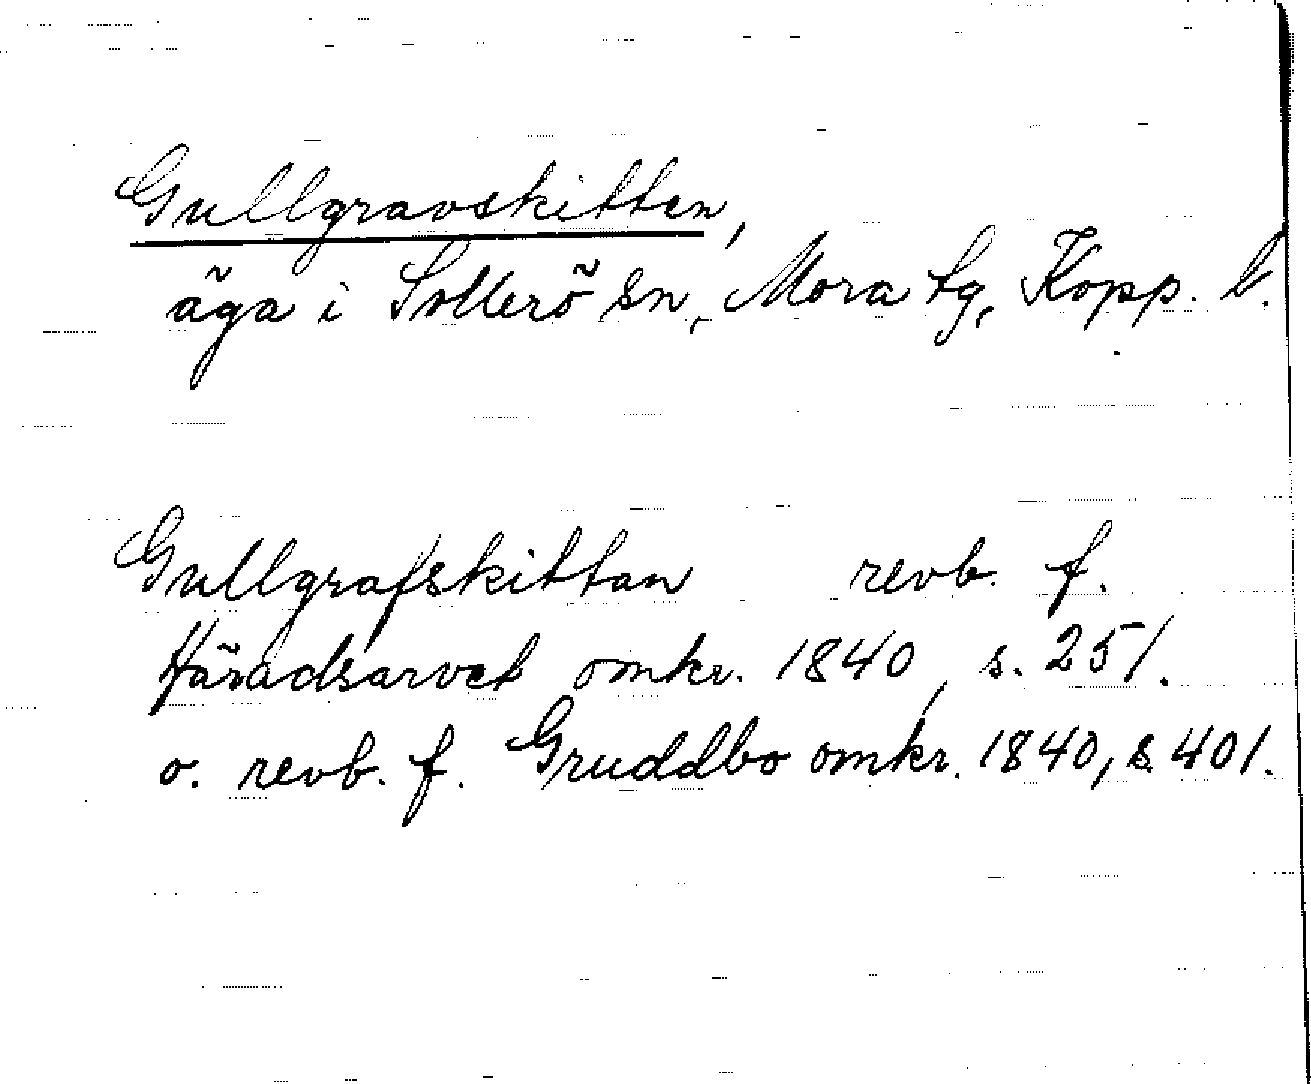 Gullgravskitten,
äga i Sollerö sn, Mora tg, Kopp. l.
Gullgrafskittan revb. f.
Häradsarvet omkr. 1840, s. 251.
o. revb. f. Gruddbo omkr. 1840, s. 401.